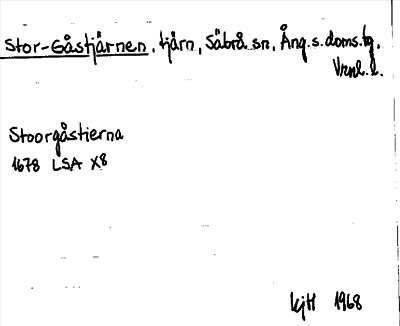 Stor-Gåstjärnen, tjärn, Säbrå sn, Ång.s.doms.tg,
Vrnl. l.
Stoorgåstierna
1678 LSA X8
kjH 1968